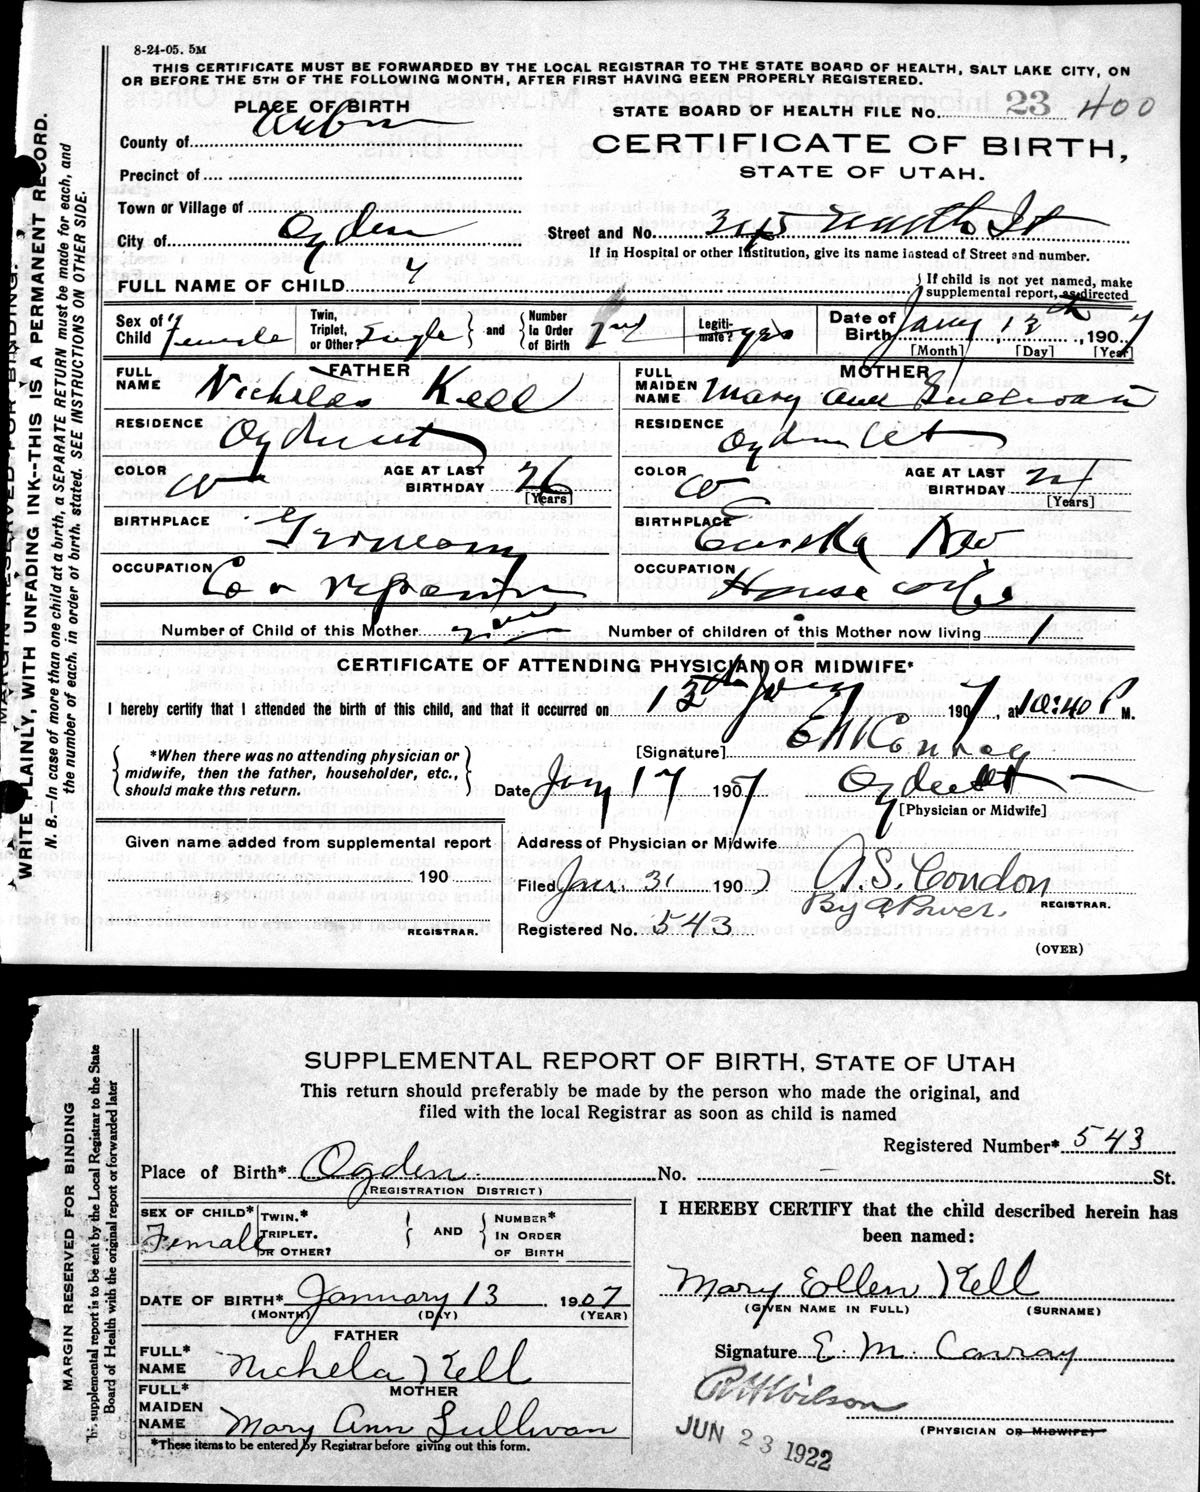 8-24-05. 5M
THIS CERTIFICATE MUST BE FORWARDED BY THE LOCAL REGISTRAR TO THE STATE BOARD OF HEALTH, SALT LAKE CITY, ON
OR BEFORE THE 5TH OF THE FOLLOWING MONTH, AFTER FIRST HAVING BEEN PROPERLY REGISTERED.
PLACE OF BIRTH
STATE BOARD OF HEALTH FILE No. 23 400
County of
CERTIFICATE OF BIRTH,
STATE OF UTAH.
Precinct of
Town or Village of
City of Ogden
Street and No. St
If in Hospital or other Institution, give its name instead of Street and number.
FULL NAME OF CHILD
If child is not yet named, make
supplemental report, as directed
Sex of Child Female
Twin, Triplet, or Other? Single and Number in Order of Birth 2nd
Legitimate? yes
Date of Birth Jany 13th, 1907
[Month] [Day] [Year]
FATHER
FULL NAME Nicholas Kell
RESIDENCE Ogden ut
COLOR W AGE AT LAST BIRTHDAY 26 [Years]
BIRTHPLACE Germany
OCCUPATION Car repairer
MOTHER
FULL MAIDEN NAME Mary Ann Sullivan
RESIDENCE Ogden Ut
COLOR W AGE AT LAST BIRTHDAY 21 [Years]
BIRTHPLACE Eureka Nev
OCCUPATION House wife
Number of Child of this Mother
Number of children of this Mother now living 1
CERTIFICATE OF ATTENDING PHYSICIAN OR MIDWIFE*
I hereby certify that I attended the birth of this child, and that it occurred on 13th Jany 1907, at 10:40 P M.
*When there was no attending physician or
midwife, then the father, householder, etc.,
should make this return.
[Signature] E M Conroy
Date Jany 17 1907 Ogden Ut
[Physician or Midwife]
Given name added from supplemental report
190
REGISTRAR.
Address of Physician or Midwife
Filed Jan. 31 1907 A.S. Condon
By A Power. REGISTRAR.
Registered No. 543
(OVER)
MARGIN RESERVED FOR BINDING.
WRITE PLAINLY, WITH UNFADING INK--THIS IS A PERMANENT RECORD.
N. B.—In case of more than one child at a birth, a SEPARATE RETURN must be made for each, and
the number of each, in order of birth, stated. SEE INSTRUCTIONS ON OTHER SIDE.
SUPPLEMENTAL REPORT OF BIRTH, STATE OF UTAH
This return should preferably be made by the person who made the original, and
filed with the local Registrar as soon as child is named
Registered Number* 543
Place of Birth* Ogden No. — St.
(REGISTRATION DISTRICT)
SEX OF CHILD* Female
TWIN.* TRIPLET. OR OTHER? AND NUMBER* IN ORDER OF BIRTH
DATE OF BIRTH* January 13 1907
(MONTH) (DAY) (YEAR)
FATHER
FULL* NAME Nichela Kell
MOTHER
FULL* MAIDEN NAME Mary Ann Sullivan
*These items to be entered by Registrar before giving out this form.
I HEREBY CERTIFY that the child described herein has
been named:
Mary Ellen Kell
(GIVEN NAME IN FULL) (SURNAME)
Signature E. M. Conroy
R H Wilson
(PHYSICIAN OR MIDWIFE)
JUN 23 1922
MARGIN RESERVED FOR BINDING
supplemental report is to be sent by the Local Registrar to the State
Board of Health with the original report or forwarded later